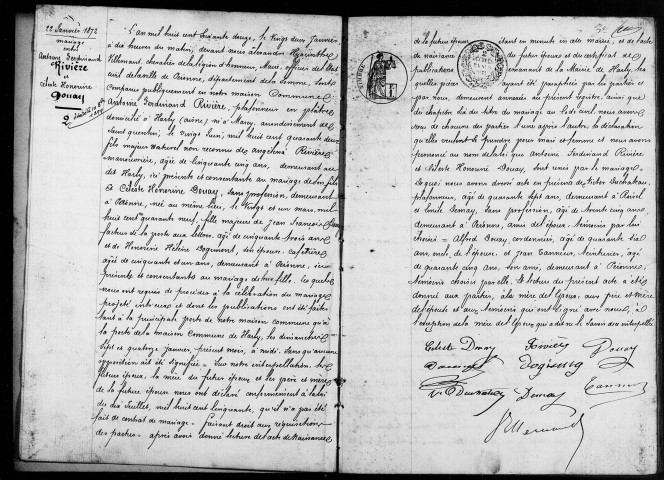 22 Janvier 1872
mariage
entre
Antoine Ferdinand
Rivière
et
Céleste Honorine
Douay
2
L'an mil huit cent soixante douze, le vingt deux Janvier,
à dix heures du matin, devant nous Alexandre Hyacinthe
chevalier de la légion d'honneur, Maire, officier de l'état
civil de la ville de Péronne, département de la Somme, sont
comparus publiquement en notre maison Commune
Antoine Ferdinand Rivière, plafonneur en plâtre
domicilié à Harly (aisne) né à Mary, arrondissement de
Saint quentin, le vingt Juin, mil huit cent quarante deux
fils majeur naturel non reconnu des Rivière
manouvrière, agée de cinquante cinq ans, demeurant au
dit Harly, ici présente et consentante au mariage de son fils
Et Céleste Honorine Douay, sans profession, demeurant
à Péronne, née au même lieu, le vingt et un mars, mil
huit cent quarante neuf, fille majeure de Jean François
facteur de la poste aux lettres, agé de cinquante trois ans
et de Honorine Hélène Dogimont, son épouse, cafetière
agée de cinquante et un ans, demeurant à Péronne, ici
présents et consentants au mariage de leur fille. Lesquels
nous ont requis de procéder à la célébration du mariage
projeté entr'eux et dont les publications ont été faites
tant à la principale porte de notre maison commune qu'à
la porte de la maison Commune de Harly, les dimanches
sept et quatorze Janvier, présent mois, à midi. Sans qu'aucune
opposition ait été signifiée. Sur notre interpellation, les
futurs époux, la mère du futur époux et les père et mère
de la future épouse nous ont déclaré conformément à la loi
du dix Juillet, mil huit cent cinquante, qu'il n'a pas été
fait de contrat de mariage. Faisant droit aux réquisitions
des parties, après avoir donné lecture de l'acte de naissance
de la future épouse étant en minute en cette mairie, et l'acte
de naissance du futur époux et du certificat de
publications émanant de la Mairie de Harly, les
quelles pièces ayant été paraphées par les parties et
par nous, demeurent annexées au présent registre, ainsi que
du chapitre six du titre du mariage au Code civil, nous avons
reçu de chacune des parties l'une après l'autre la déclaration
qu'elle veulent se prendre pour mari et femme et nous avons
prononcé au nom de la loi que Antoine Ferdinand Rivière
et Céleste Honorine Douay, sont unis par le mariage.
De quoi nous avons dressé acte en présence de Victor
plafonneur, agé de quarante sept ans, demeurant à
et Emile Demay, sans profession, agé de trente cinq ans
demeurant à Péronne, amis de l'époux, témoins par lui
choisis = Alfred Douay cordonnier, agé de quarante six
ans, oncle de l'épouse, et Jean teinturier, agé
de quarante cinq ans, son ami, demeurant à Péronne,
témoins choisis par elle. Et lecture du présent acte a été
donnée aux parties, à la mère de l'époux, aux père et mère
de l'épouse et aux témoins qui ont signé avec nous, à
l'exception de la mère de l'époux qui a dit ne le savoir de ce interpellée
Céleste Douay Rivière Douay
Dogimont
Demay